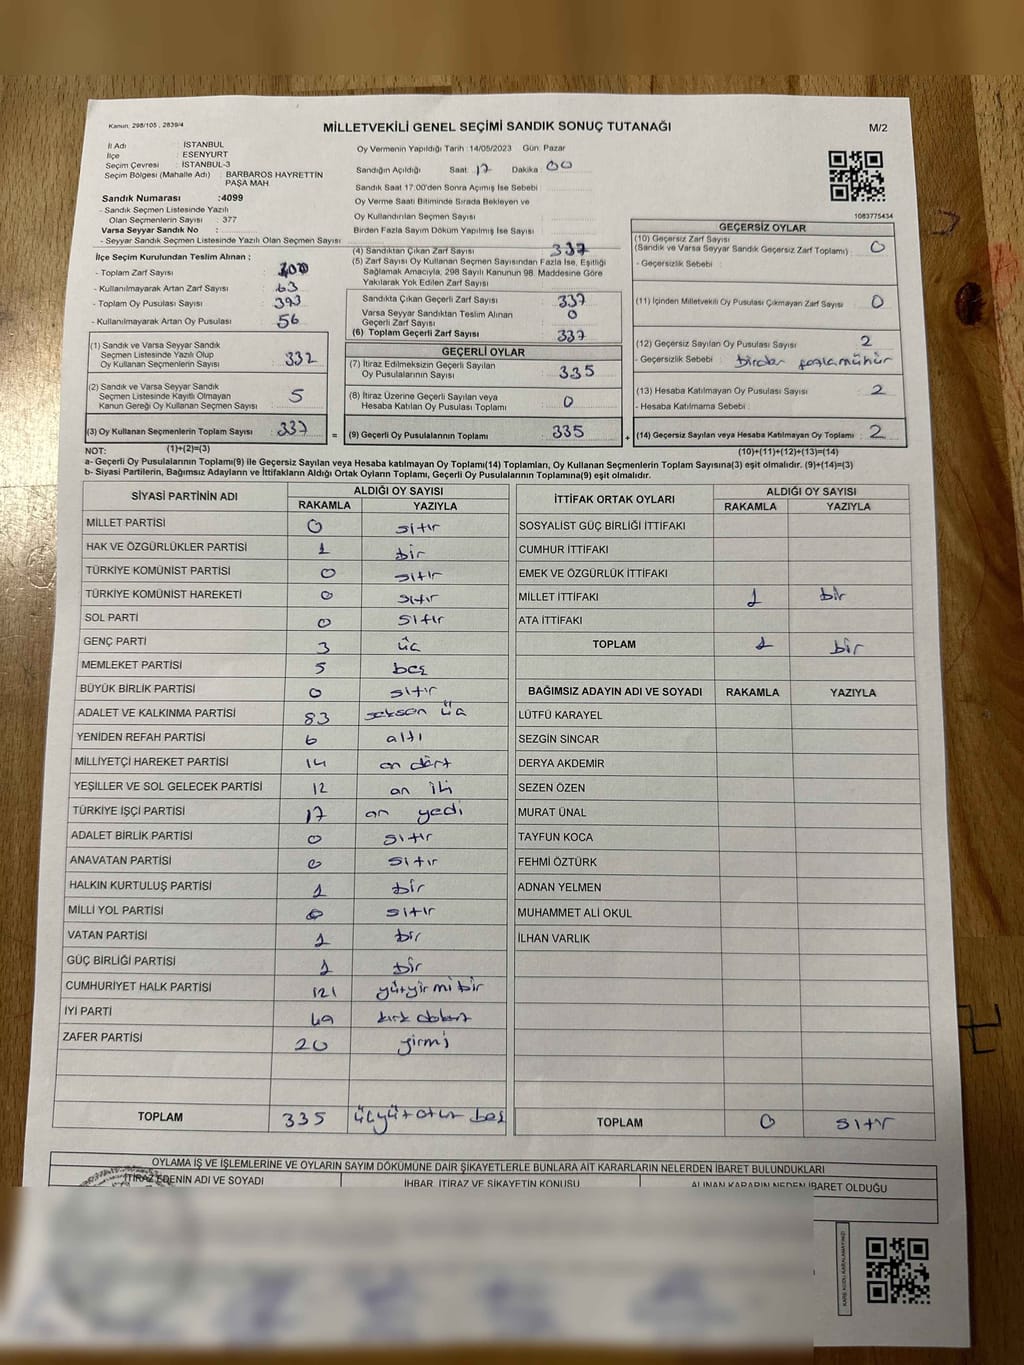 Kanun, 298/105 , 2839/4
MİLLETVEKİLİ GENEL SEÇİMİ SANDIK SONUÇ TUTANAĞI
M/2
İl Adı : İSTANBUL
İlçe : ESENYURT
Seçim Çevresi : İSTANBUL-3
Seçim Bölgesi (Mahalle Adı) : BARBAROS HAYRETTİN PAŞA MAH
Sandık Numarası :4099
- Sandık Seçmen Listesinde Yazılı
Olan Seçmenlerin Sayısı : 377
Varsa Seyyar Sandık No :
- Seyyar Sandık Seçmen Listesinde Yazılı Olan Seçmen Sayısı
Oy Vermenin Yapıldığı Tarih :14/05/2023 Gün: Pazar
Sandığın Açıldığı Saat: 17 Dakika: 00
Sandık Saat 17:00'den Sonra Açımış İse Sebebi
Oy Verme Saati Bitiminde Sırada Bekleyen ve
Oy Kullandırılan Seçmen Sayısı
Birden Fazla Sayım Döküm Yapılmış İse Sayısı
1083775434
İlçe Seçim Kurulundan Teslim Alınan ;
- Toplam Zarf Sayısı : 400
- Kullanılmayarak Artan Zarf Sayısı : 63
- Toplam Oy Pusulası Sayısı : 393
- Kullanılmayarak Artan Oy Pusulası : 56
(1) Sandık ve Varsa Seyyar Sandık
Seçmen Listesinde Yazılı Olup
Oy Kullanan Seçmenlerin Sayısı : 332
(2) Sandık ve Varsa Seyyar Sandık
Seçmen Listesinde Kayıtlı Olmayan
Kanun Gereği Oy Kullanan Seçmen Sayısı : 5
(3) Oy Kullanan Seçmenlerin Toplam Sayısı : 337
(1)+(2)=(3)
(4) Sandıktan Çıkan Zarf Sayısı 337
(5) Zarf Sayısı Oy Kullanan Seçmen Sayısından Fazla İse, Eşitliği
Sağlamak Amacıyla, 298 Sayılı Kanunun 98. Maddesine Göre
Yakılarak Yok Edilen Zarf Sayısı
Sandıkta Çıkan Geçerli Zarf Sayısı : 337
Varsa Seyyar Sandıktan Teslim Alınan
Geçerli Zarf Sayısı : 0
(6) Toplam Geçerli Zarf Sayısı : 337
GEÇERLİ OYLAR
(7) İtiraz Edilmeksizin Geçerli Sayılan
Oy Pusulalarının Sayısı : 335
(8) İtiraz Üzerine Geçerli Sayılan veya
Hesaba Katılan Oy Pusulası Toplamı : 0
= (9) Geçerli Oy Pusulalarının Toplamı : 335
GEÇERSİZ OYLAR
(10) Geçersiz Zarf Sayısı
(Sandık ve Varsa Seyyar Sandık Geçersiz Zarf Toplamı) : 0
- Geçersizlik Sebebi :
(11) İçinden Milletvekili Oy Pusulası Çıkmayan Zarf Sayısı : 0
(12) Geçersiz Sayılan Oy Pusulası Sayısı : 2
- Geçersizlik Sebebi : birden fazla mühür
(13) Hesaba Katılmayan Oy Pusulası Sayısı : 2
- Hesaba Katılmama Sebebi :
+ (14) Geçersiz Sayılan veya Hesaba Katılmayan Oy Toplamı : 2
(10)+(11)+(12)+(13)=(14)
NOT:
a- Geçerli Oy Pusulasının Toplamı(9) ile Geçersiz Sayılan veya Hesaba katılmayan Oy Toplamı(14) Toplamları, Oy Kullanan Seçmenlerin Toplam Sayısına(3) eşit olmalıdır. (9)+(14)=(3)
b- Siyasi Partilerin, Bağımsız Adayların ve İttifakların Aldığı Ortak Oyların Toplamı, Geçerli Oy Pusulalarının Toplamına(9) eşit olmalıdır.
SİYASİ PARTİNİN ADI ALDIĞI OY SAYISI
RAKAMLA YAZIYLA
MİLLET PARTİSİ 0 sıfır
HAK VE ÖZGÜRLÜKLER PARTİSİ 1 bir
TÜRKİYE KOMÜNİST PARTİSİ 0 sıfır
TÜRKİYE KOMÜNİST HAREKETİ 0 sıfır
SOL PARTİ 0 sıfır
GENÇ PARTİ 3 üç
MEMLEKET PARTİSİ 5 beş
BÜYÜK BİRLİK PARTİSİ 0 sıfır
ADALET VE KALKINMA PARTİSİ 83 seksen üç
YENİDEN REFAH PARTİSİ 6 altı
MİLLİYETÇİ HAREKET PARTİSİ 14 on dört
YEŞİLLER VE SOL GELECEK PARTİSİ 12 on iki
TÜRKİYE İŞÇİ PARTİSİ 17 on yedi
ADALET BİRLİK PARTİSİ 0 sıfır
ANAVATAN PARTİSİ 0 sıfır
HALKIN KURTULUŞ PARTİSİ 1 bir
MİLLİ YOL PARTİSİ 0 sıfır
VATAN PARTİSİ 1 bir
GÜÇ BİRLİĞİ PARTİSİ 1 bir
CUMHURİYET HALK PARTİSİ 121 yüzyirmi bir
İYİ PARTİ 49 kırk dokuz
ZAFER PARTİSİ 20 yirmi
TOPLAM 335 üçyüz otuz beş
İTTİFAK ORTAK OYLARI ALDIĞI OY SAYISI
RAKAMLA YAZIYLA
SOSYALİST GÜÇ BİRLİĞİ İTTİFAKI
CUMHUR İTTİFAKI
EMEK VE ÖZGÜRLÜK İTTİFAKI
MİLLET İTTİFAKI 1 bir
ATA İTTİFAKI
TOPLAM 1 bir
BAĞIMSIZ ADAYIN ADI VE SOYADI RAKAMLA YAZIYLA
LÜTFÜ KARAYEL
SEZGİN SİNCAR
DERYA AKDEMİR
SEZEN ÖZEN
MURAT ÜNAL
TAYFUN KOCA
FEHMİ ÖZTÜRK
ADNAN YELMEN
MUHAMMET ALİ OKUL
İLHAN VARLIK
TOPLAM 0 sıfır
OYLAMA İŞ VE İŞLEMLERİNE VE OYLARIN SAYIM DÖKÜMÜNE DAİR ŞİKAYETLERLE BUNLARA AİT KARARLARIN NELERDEN İBARET BULUNDUKLARI
İTİRAZ EDENİN ADI VE SOYADI İHBAR, İTİRAZ VE ŞİKAYETİN KONUSU ALINAN KARARIN NEDEN İBARET OLDUĞU
KARE KODU KARALAMAYINIZ!